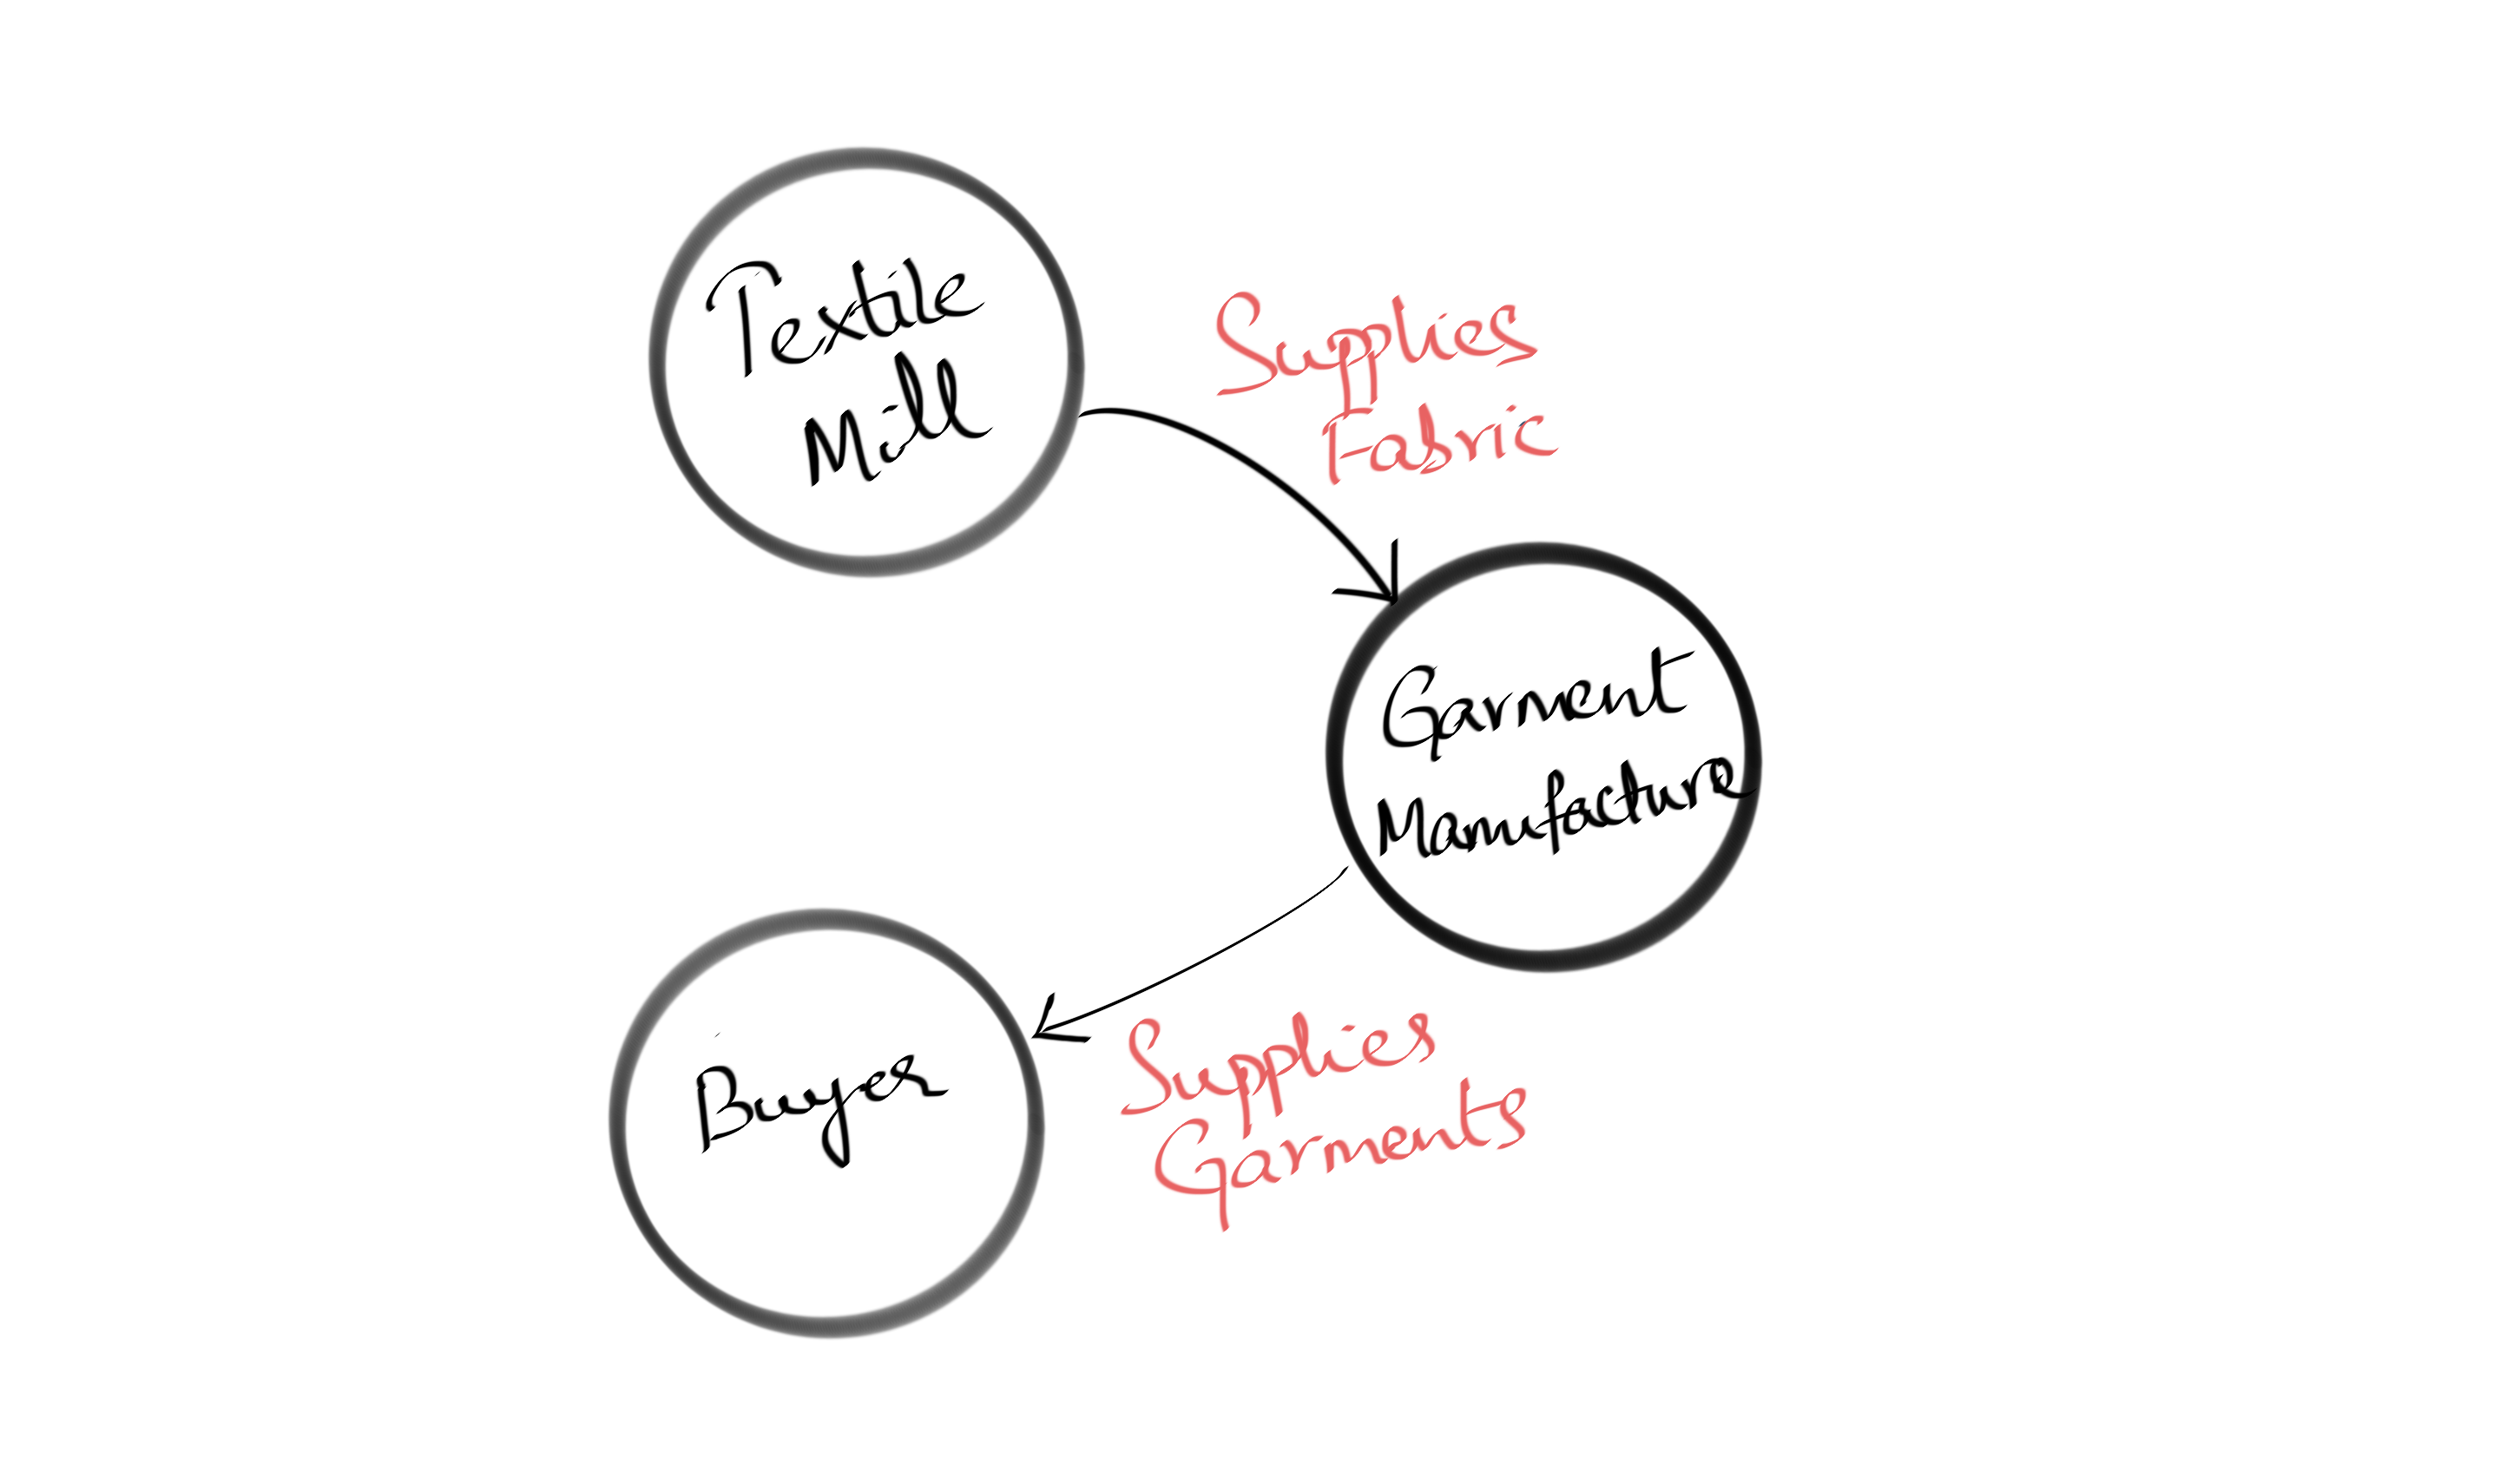 Textile
Mill
Supplies
Fabric
Garment
Manufacture
Buyer
Supplies
Garments